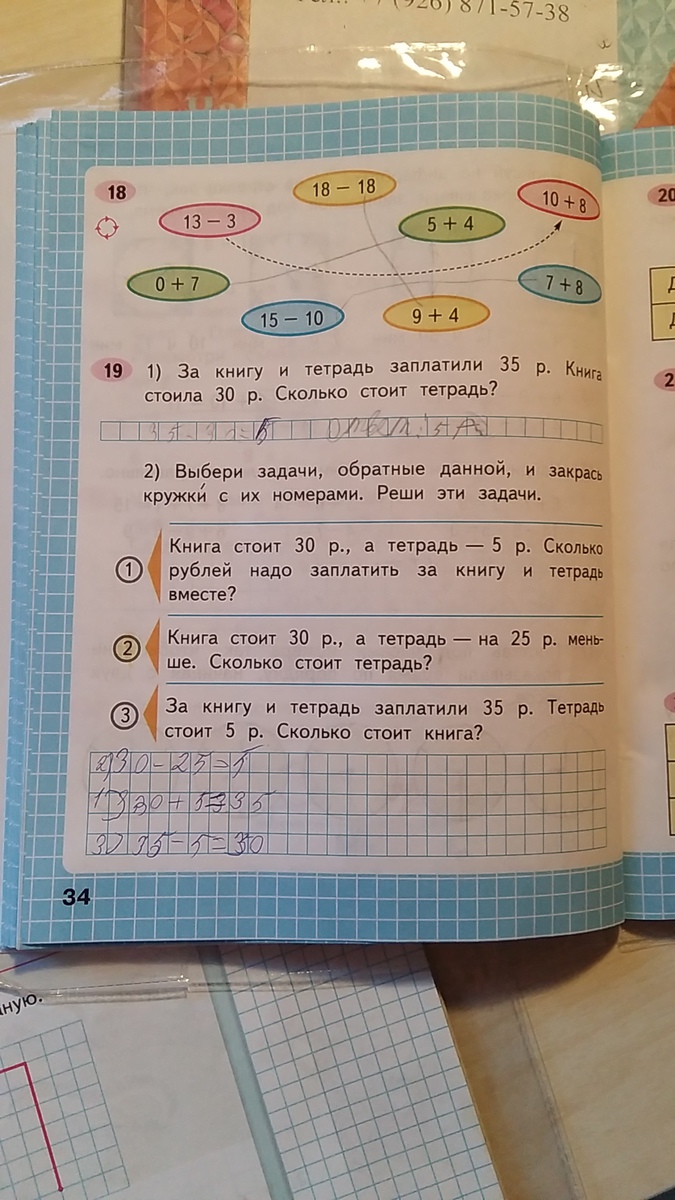 (926) 871-57-38
18
18 − 18
10 + 8
13 − 3
5 + 4
0 + 7
7 + 8
15 − 10
9 + 4
19
1) За книгу и тетрадь заплатили 35 р. Книга
стоила 30 р. Сколько стоит тетрадь?
35-30=5 Ответ: 5 р.
2) Выбери задачи, обратные данной, и закрась
кружки́ с их номерами. Реши эти задачи.
1
Книга стоит 30 р., а тетрадь — 5 р. Сколько
рублей надо заплатить за книгу и тетрадь
вместе?
2
Книга стоит 30 р., а тетрадь — на 25 р. мень-
ше. Сколько стоит тетрадь?
3
За книгу и тетрадь заплатили 35 р. Тетрадь
стоит 5 р. Сколько стоит книга?
2) 30-25=5
1) 30+5=35
3) 35-5=30
34
20
ную.